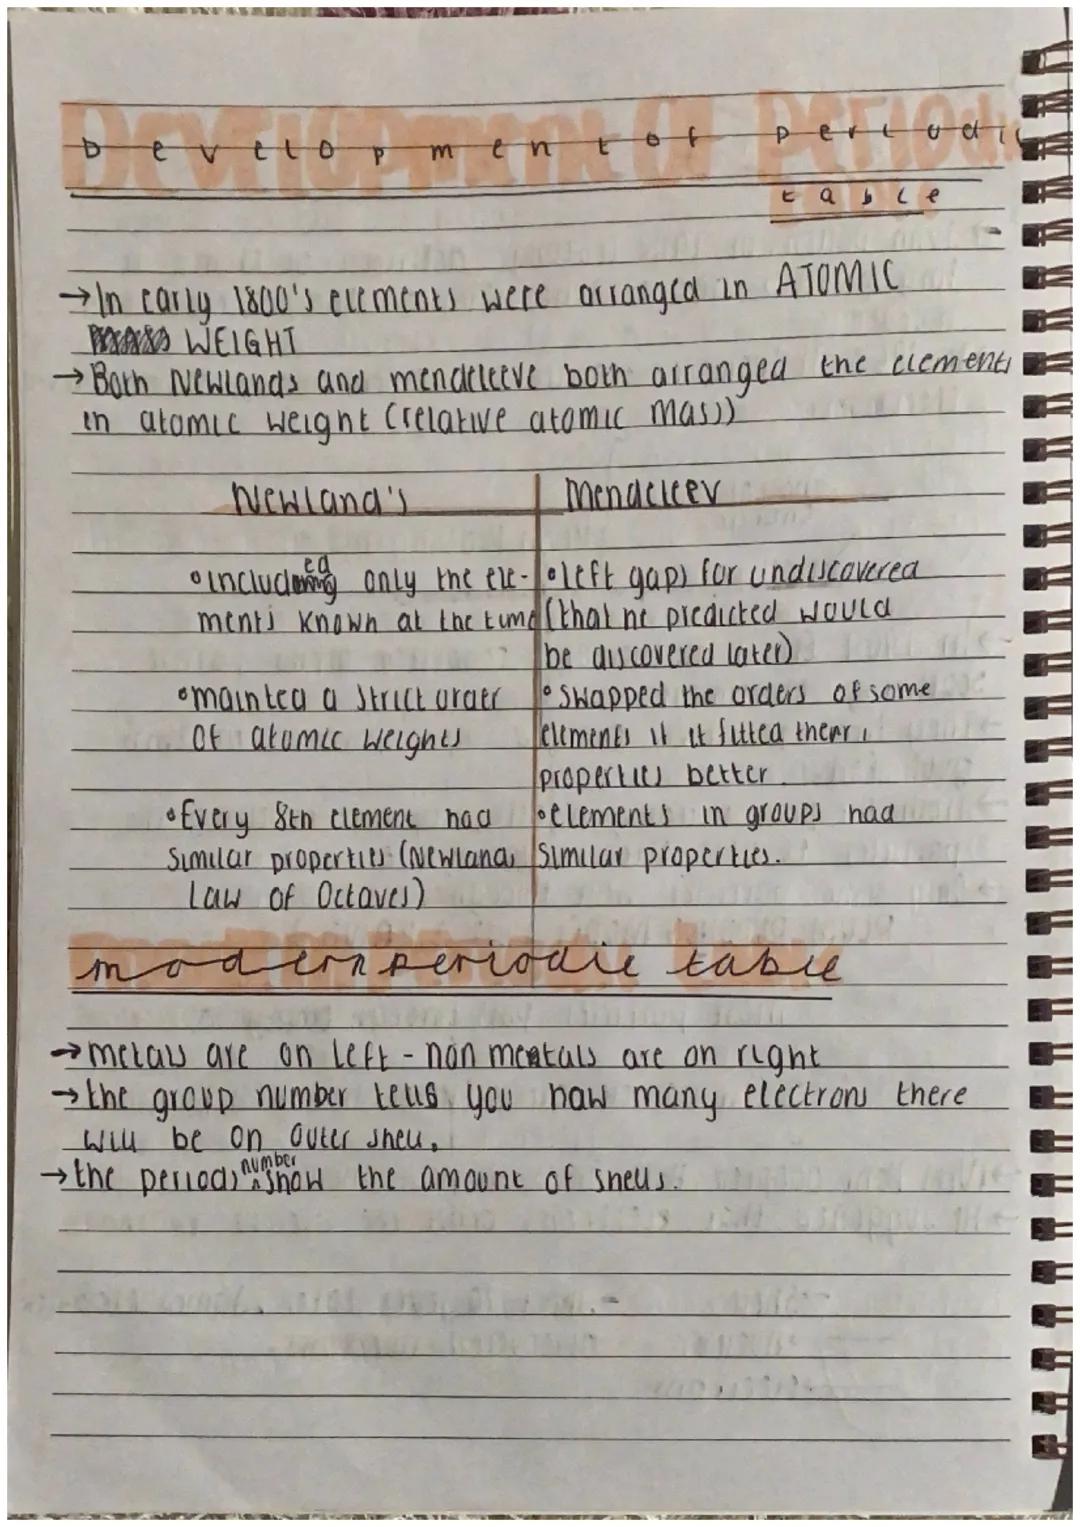 Development of periodic
table
→In early 1800's elements were arranged in ATOMIC
WEIGHT
→Both Newlands and mendeleeve both arranged the elements
in atomic weight (relative atomic mass)
Newland's
Mendeleev
•included only the ele-
ments known at the time
•mainted a strict order
of atomic weights
•Every 8th element had
similar properties (Newlands
Law of Octaves)
•left gaps for undiscovered
(that he predicted would
be discovered later)
•swapped the orders of some
elements if it fitted their
properties better.
•elements in groups had
similar properties.
modern periodic table
→metals are on left - non metals are on right
→the group number tells you how many electrons there
will be on outer shell.
→the periods number show the amount of shells.